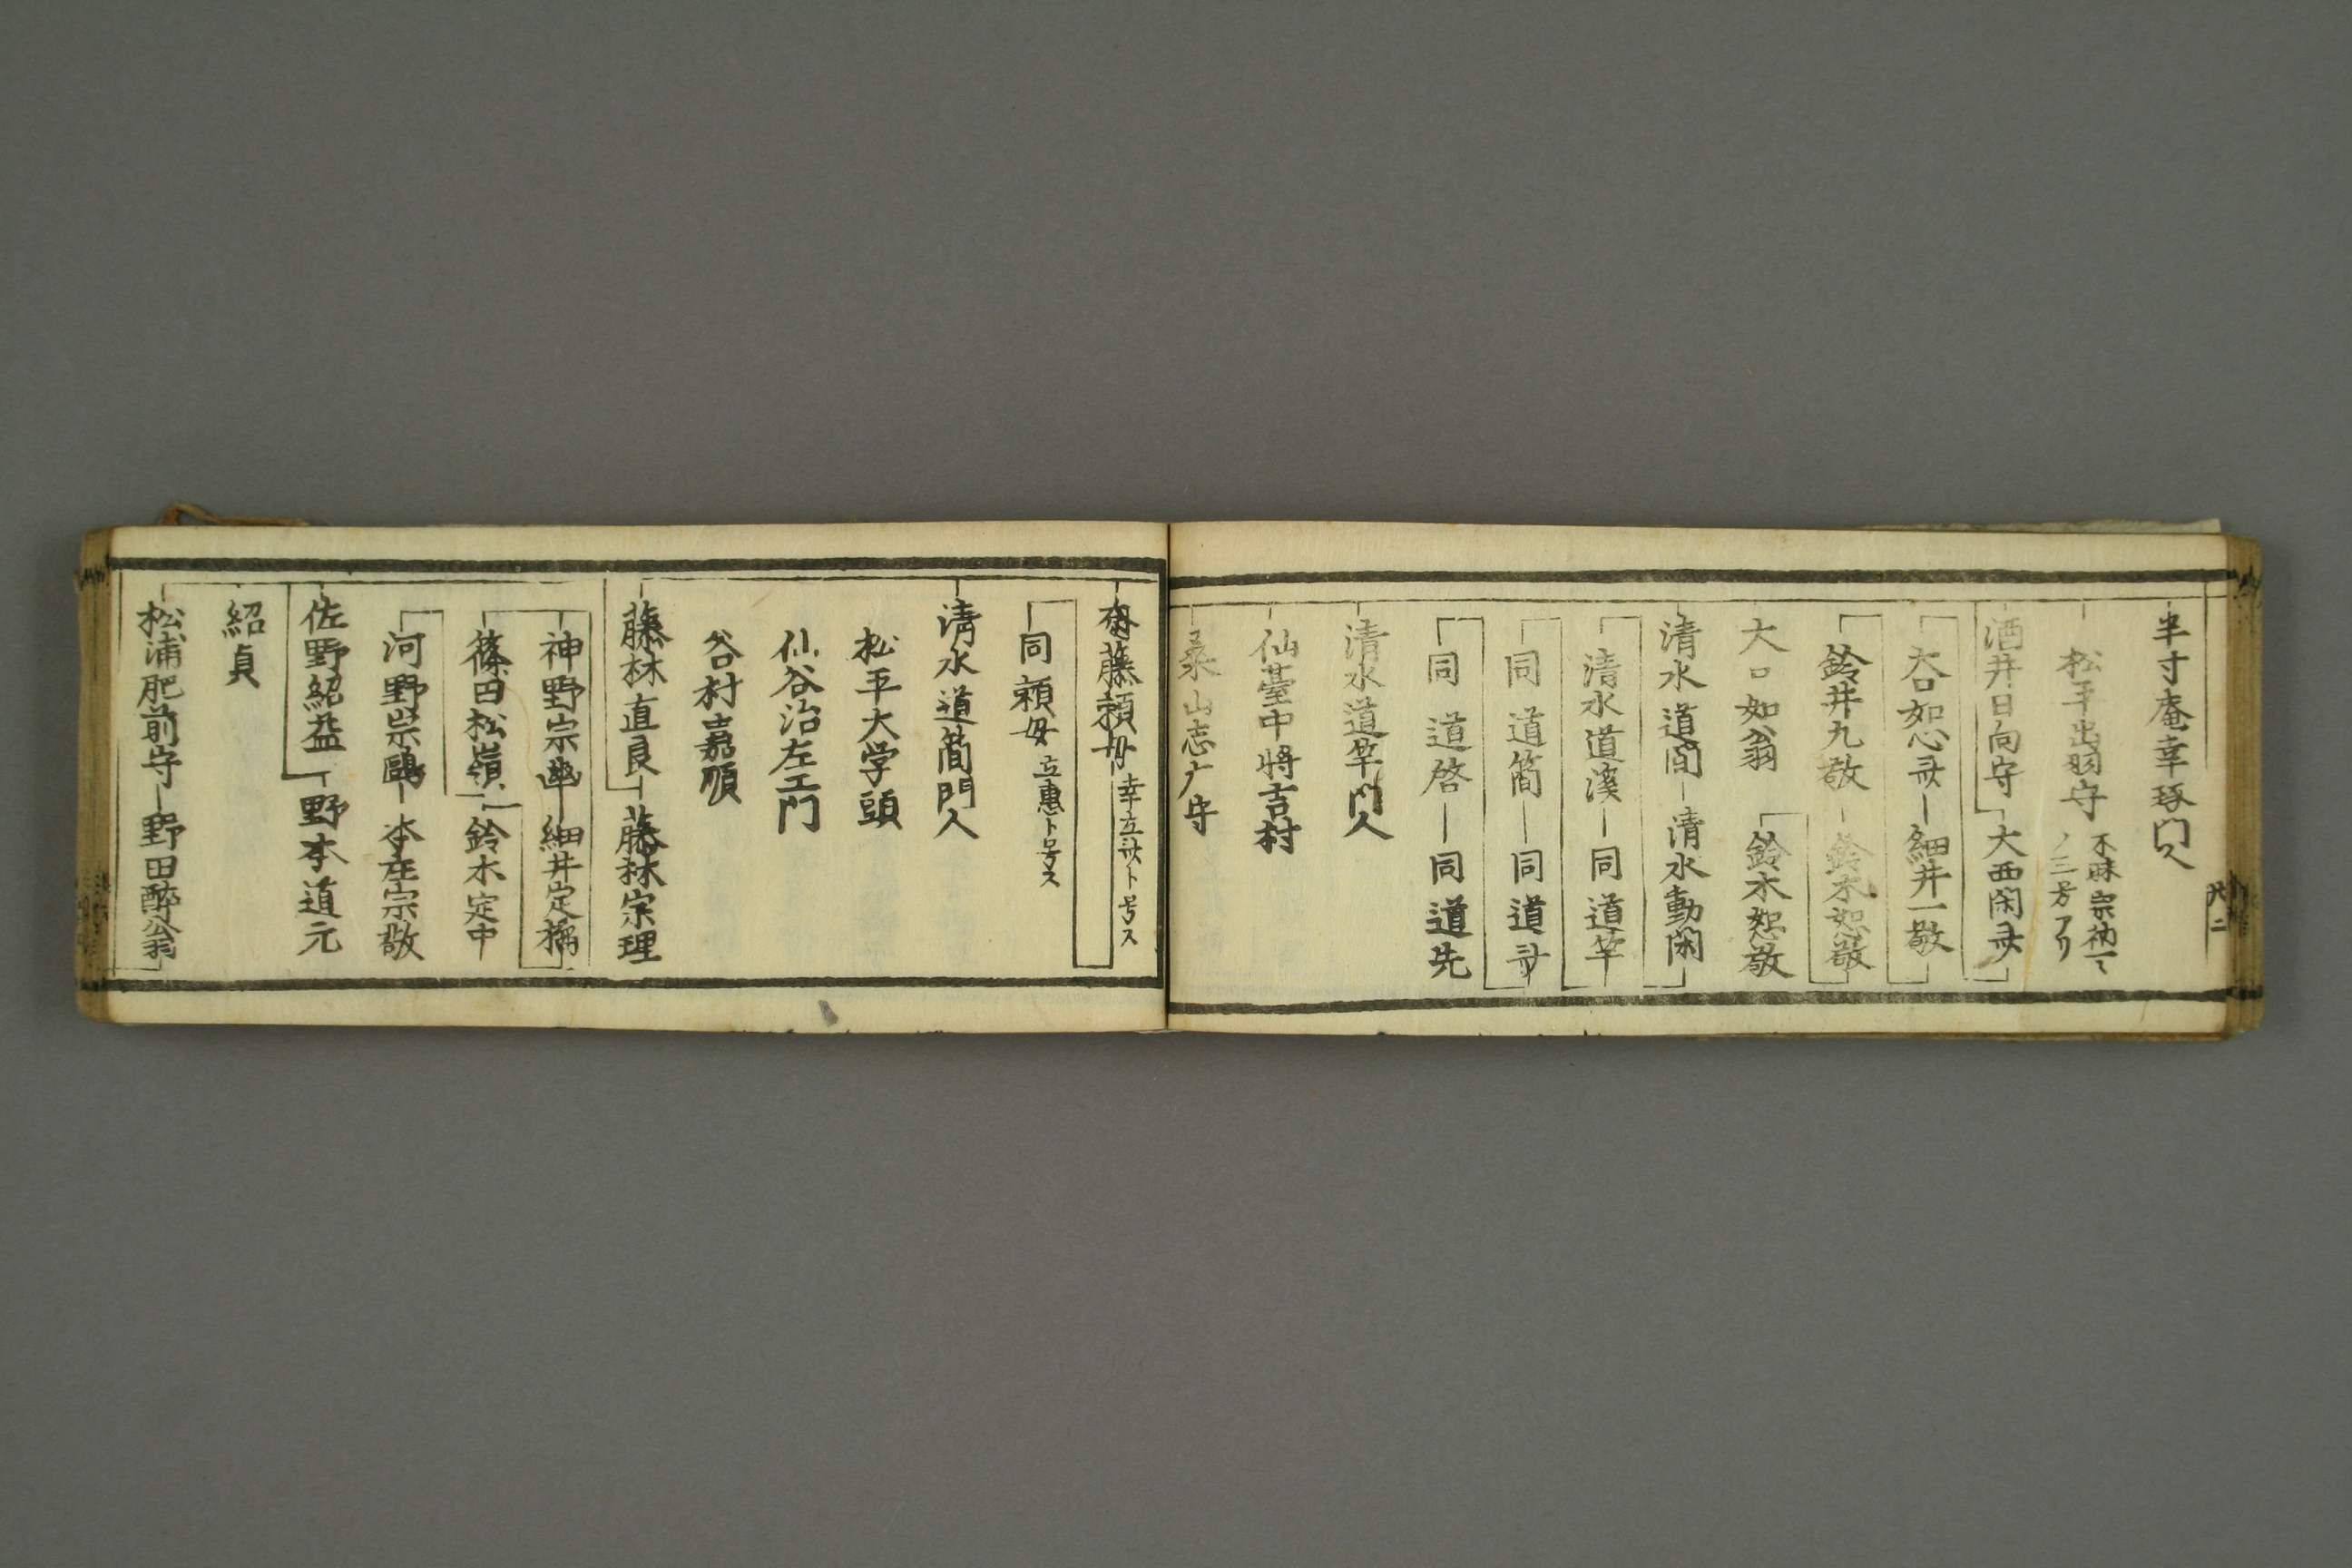 半寸庵幸琢門人
松平出羽守 不昧宗衲一々ノ三号アリ
酒井日向守 大西閑斎
大口如心斎 細井一敬
鈴井九敬 鈴木恕敬
大口如翁 鈴木恕敬
清水道閑 清水動閑
清水道溪 同道竿
同道簡 同道斎
同道啓 同道先
清水道竿門人
仙臺中將吉村
桑山志广守
齋藤頼母 幸立斎ト号ス
同頼母 立惠ト号ス
清水道簡門人
松平大学頭
仙谷治左エ門
谷村嘉順
藤林直良 藤林宗理
神野宗幽 細井定擕
篠田松嶺 鈴木定中
河野宗鷗 本庄宗敬
佐野紹益 野本道元
紹貞
松浦肥前守 野田醉翁